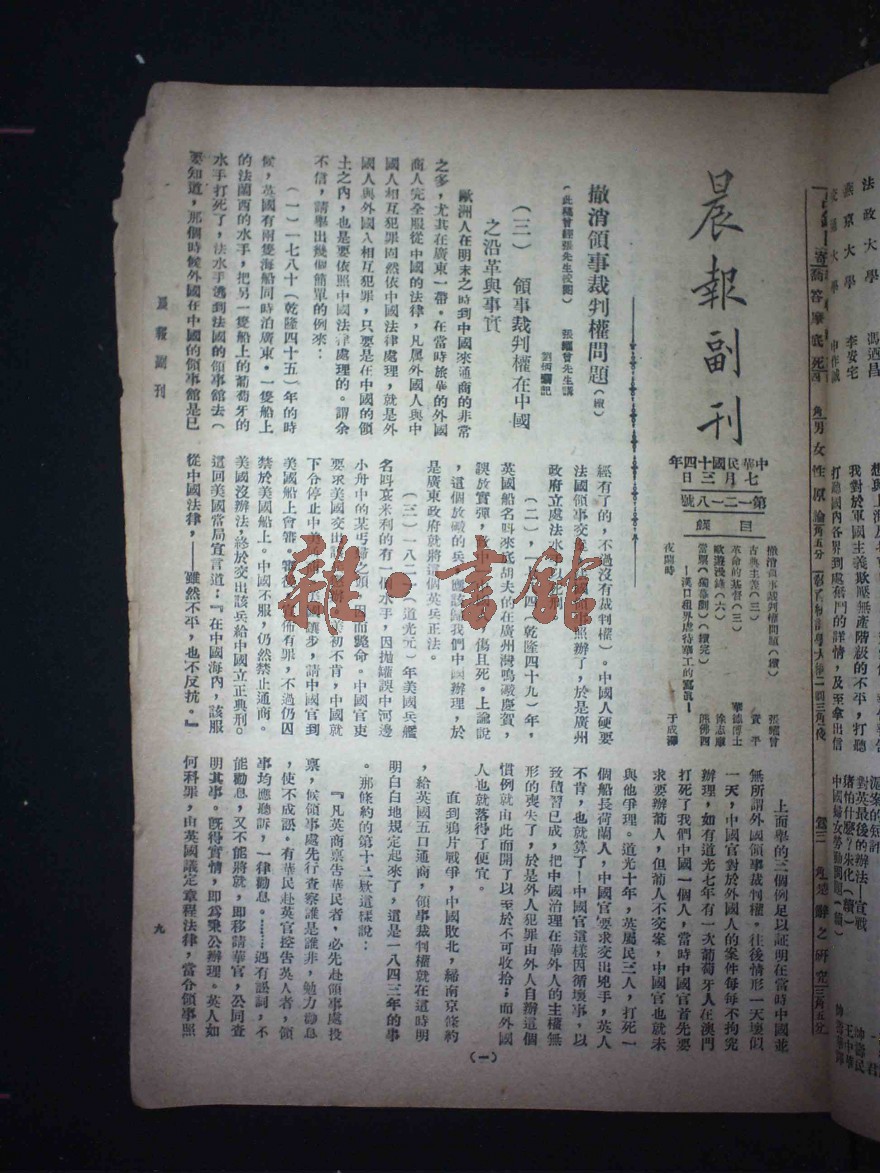 晨報副刊
中華民國十四年
七月三日
第一二一八號
目錄
撤消領事裁判權問題(續) 張耀曾
古典主義(三) 資平
革命的基督(三) 華德博士
歐遊漫錄(六) 徐志摩
當票(獨幕劇)(續完) 熊佛西
——漢口租界虐待華工的寫眞——
夜闌時 于成澤
撤消領事裁判權問題(續)
張耀曾先生講
(此稿曾經張先生校閱)
(三) 領事裁判權在中國
之沿革與事實
歐洲人在明末之時到中國來通商的非常
之多,尤其在廣東一帶。在當時旅華的外國
商人完全服從中國的法律,凡屬外國人與中
國人相互犯罪固然依中國法律處理,就是外
國人與外國人相互犯罪,只要是在中國的領
土之內,也是要依照中國法律處理的。謂余
不信,請舉出幾個簡單的例來:
(一)一七八十(乾隆四十五)年的時
候,英國有兩隻海船同時泊廣東。一隻船上
的法蘭西的水手,把另一隻船上的葡萄牙的
水手打死了,法水手逃到法國的領事館去(
要知道,那個時候外國在中國的領事館是已
經有了的,不過沒有裁判權)。中國人硬要
法國領事交
事照辦了,於是廣州
政府立處法水
(二),一
四(乾隆四十九)年,
英國船名叫來底胡夫的在廣州灣鳴礮慶賀,
誤放實彈,
傷且死。上諭說
,這個放礮的兵
應該歸我們中國辦理,於
是廣東政府就將這個英兵正法。
(三)一八二
(道光元)年美國兵艦
名叫哀米利的有一個水手,因拋罐誤中河邊
小舟中的某丐婦之頭,因而斃命。中國官吏
要求美國交出該
美初不肯,中國就
下令停止中美
美國讓步,請中國官到
美國船上會審。
宣佈有罪,不過仍囚
禁於美國船上。中國不服,仍然禁止通商。
美國沒辦法,終於交出該兵給中國立正典刑。
這回美國當局宣言道:『在中國海內,該服
從中國法律,——雖然不平,也不反抗。』
上面舉的三個例足以証明在當時中國並
無所謂外國領事裁判權。往後情形一天壞似
一天,中國官對於外國人的案件每每不拘究
辦理,如有道光七年有一次葡萄牙人在澳門
打死了我們中國一個人,當時中國官首先要
求要辦葡人,但葡人不交案,中國官也就未
與他爭理。道光十年,英屬民三人,打死一
個船長荷蘭人,中國官要求交出兇手,英人
不肯,也就算了!中國官這樣因循壞事,以
致積習已成,把中國治理在華外人的主權無
形的喪失了,於是外人犯罪由外人自辦這個
慣例就由此而開了以至於不可收拾;而外國
人也就落得了便宜。
直到鴉片戰爭,中國敗北,締南京條約
,給英國五口通商,領事裁判權就在這時明
明白白地規定起來了,這是一八四三年的事
。那條約的第十三欵這樣說:
『凡英商稟告華民者,必先赴領事處投
稟,候領事處先行查察誰是誰非,勉力勸息
,使不成訟。有華民赴英官控告英人者,領
事均應聽訴,一律勸息。……遇有訟詞,不
能勸息,又不能將就,即移請華官,公同查
明其事。旣得實情,即爲秉公辦理。英人如
何科罪,由英國議定章程法律,當令領事照
(一)
晨報副刊
九
法政大學
馮迺昌
燕京大學
李安宅
交通大學
男女性原論
我對於軍國主義欺壓無產階級的不平,打聽
打聽國內各界到處奮鬥的詳情,及至拿出信
滬案的短評
對英最後的辦法——宣戰
堵怕什麼?朱化(續)
中國婦女勞動問題(續)
楚辭之研究
三角五分
雜·書館